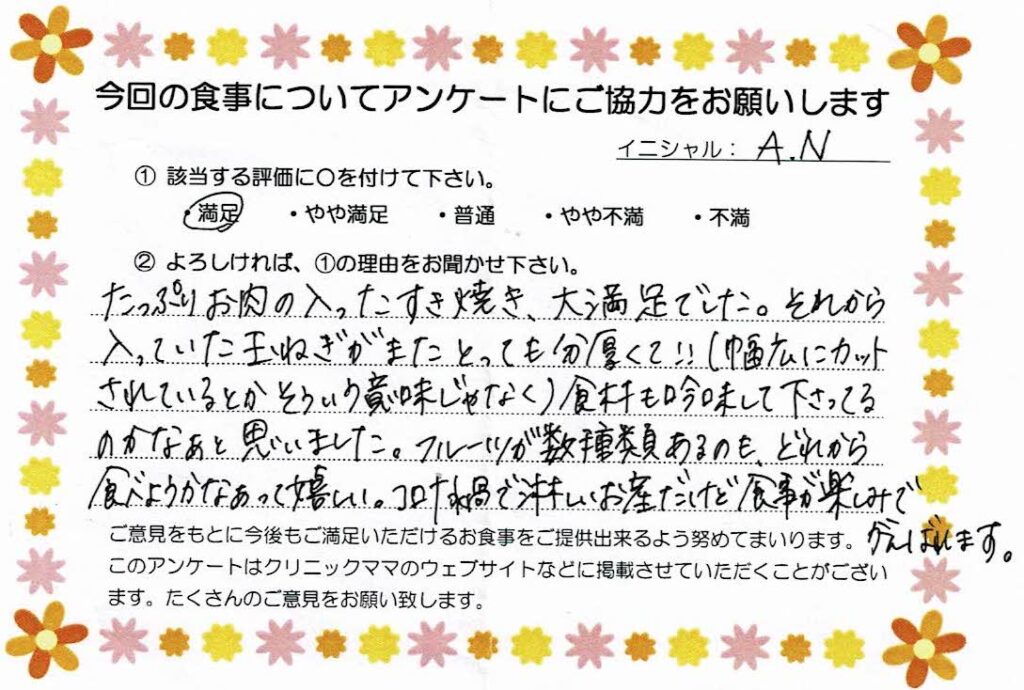 今回の食事についてアンケートにご協力をお願いします
イニシャル： A.N
① 該当する評価に〇を付けて下さい。
・満足 ・やや満足 ・普通 ・やや不満 ・不満
② よろしければ、①の理由をお聞かせ下さい。
たっぷりお肉の入ったすき焼き、大満足でした。それから
入っていた玉ねぎがまたとっても分厚くて!!(幅広にカット
されているとかそういう意味じゃなく)食材も吟味して下さってる
のかなぁと思いました。フルーツが数種類あるのも、どれから
食べようかなあって嬉しい。コロナ禍で淋しいお産だけど食事が楽しみで
がんばれます。
ご意見をもとに今後もご満足いただけるお食事をご提供出来るよう努めてまいります。
このアンケートはクリニックママのウェブサイトなどに掲載させていただくことがござい
ます。たくさんのご意見をお願い致します。